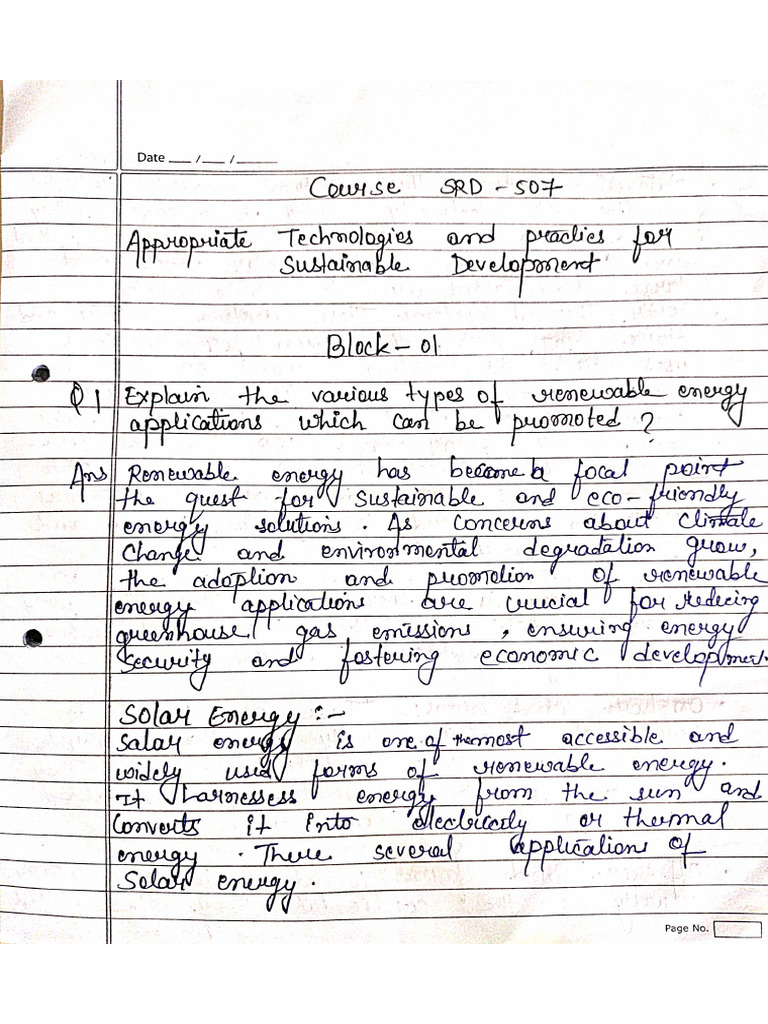 Date ___ /___ /_____
Course SRD - 507
Appropriate Technologies and practies for
Sustainable Development
Block - 01
Q 1 Explain the various types of renewable energy
applications which can be promoted ?
Ans Renewable energy has become a focal point
the quest for sustainable and eco-friendly
energy solutions. As concerns about Climate
Change and environmental degradation grow,
the adoption and promotion of renewable
energy applications are crucial for reducing
greenhouse gas emissions, ensuring energy
security and fostering economic development.
Solar Energy :-
Salar energy is one of the most accessible and
widely used forms of renewable energy.
It harnessess energy from the sun and
Converts it into electricity or thermal
energy. There several applications of
Solar energy.
Page No.